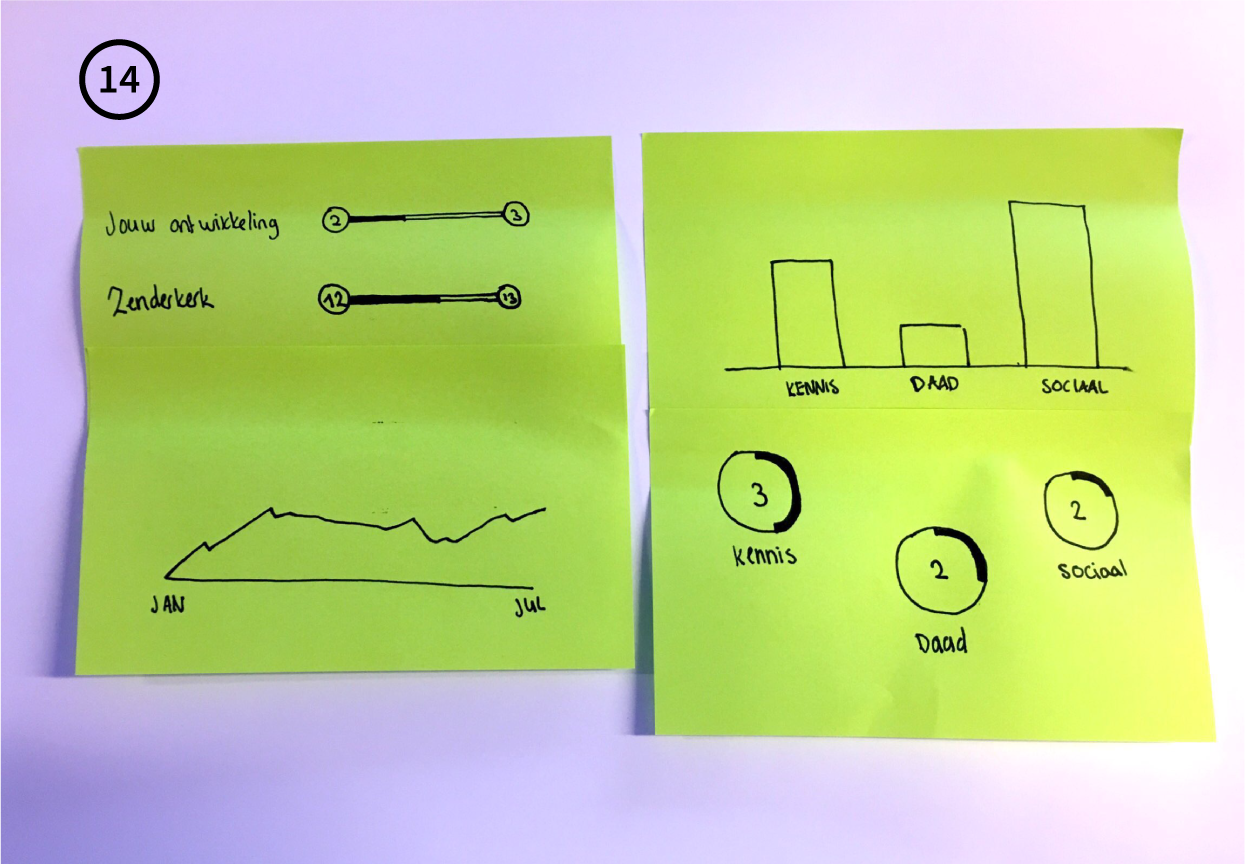 14
Jouw ontwikkeling 2 3
Zenderkerk 12 13
JAN JUL
KENNIS DAAD SOCIAAL
3
Kennis
2
Daad
2
Sociaal